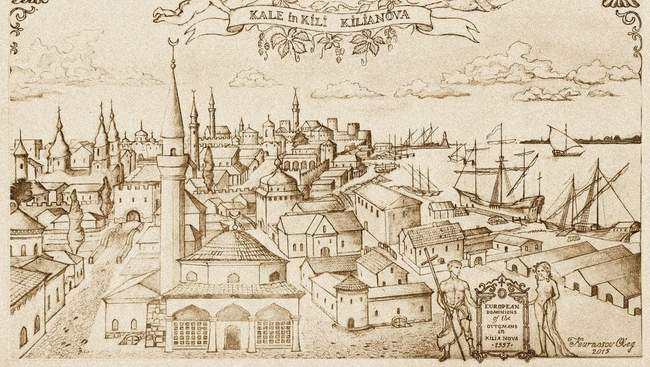 KALE in KILI KILIANOVA
EUROPEAN
DOMINIONS
of the
OTTOMANS
in
KILIA NOVA
· 1557 ·
Fournosov Oleg
2015